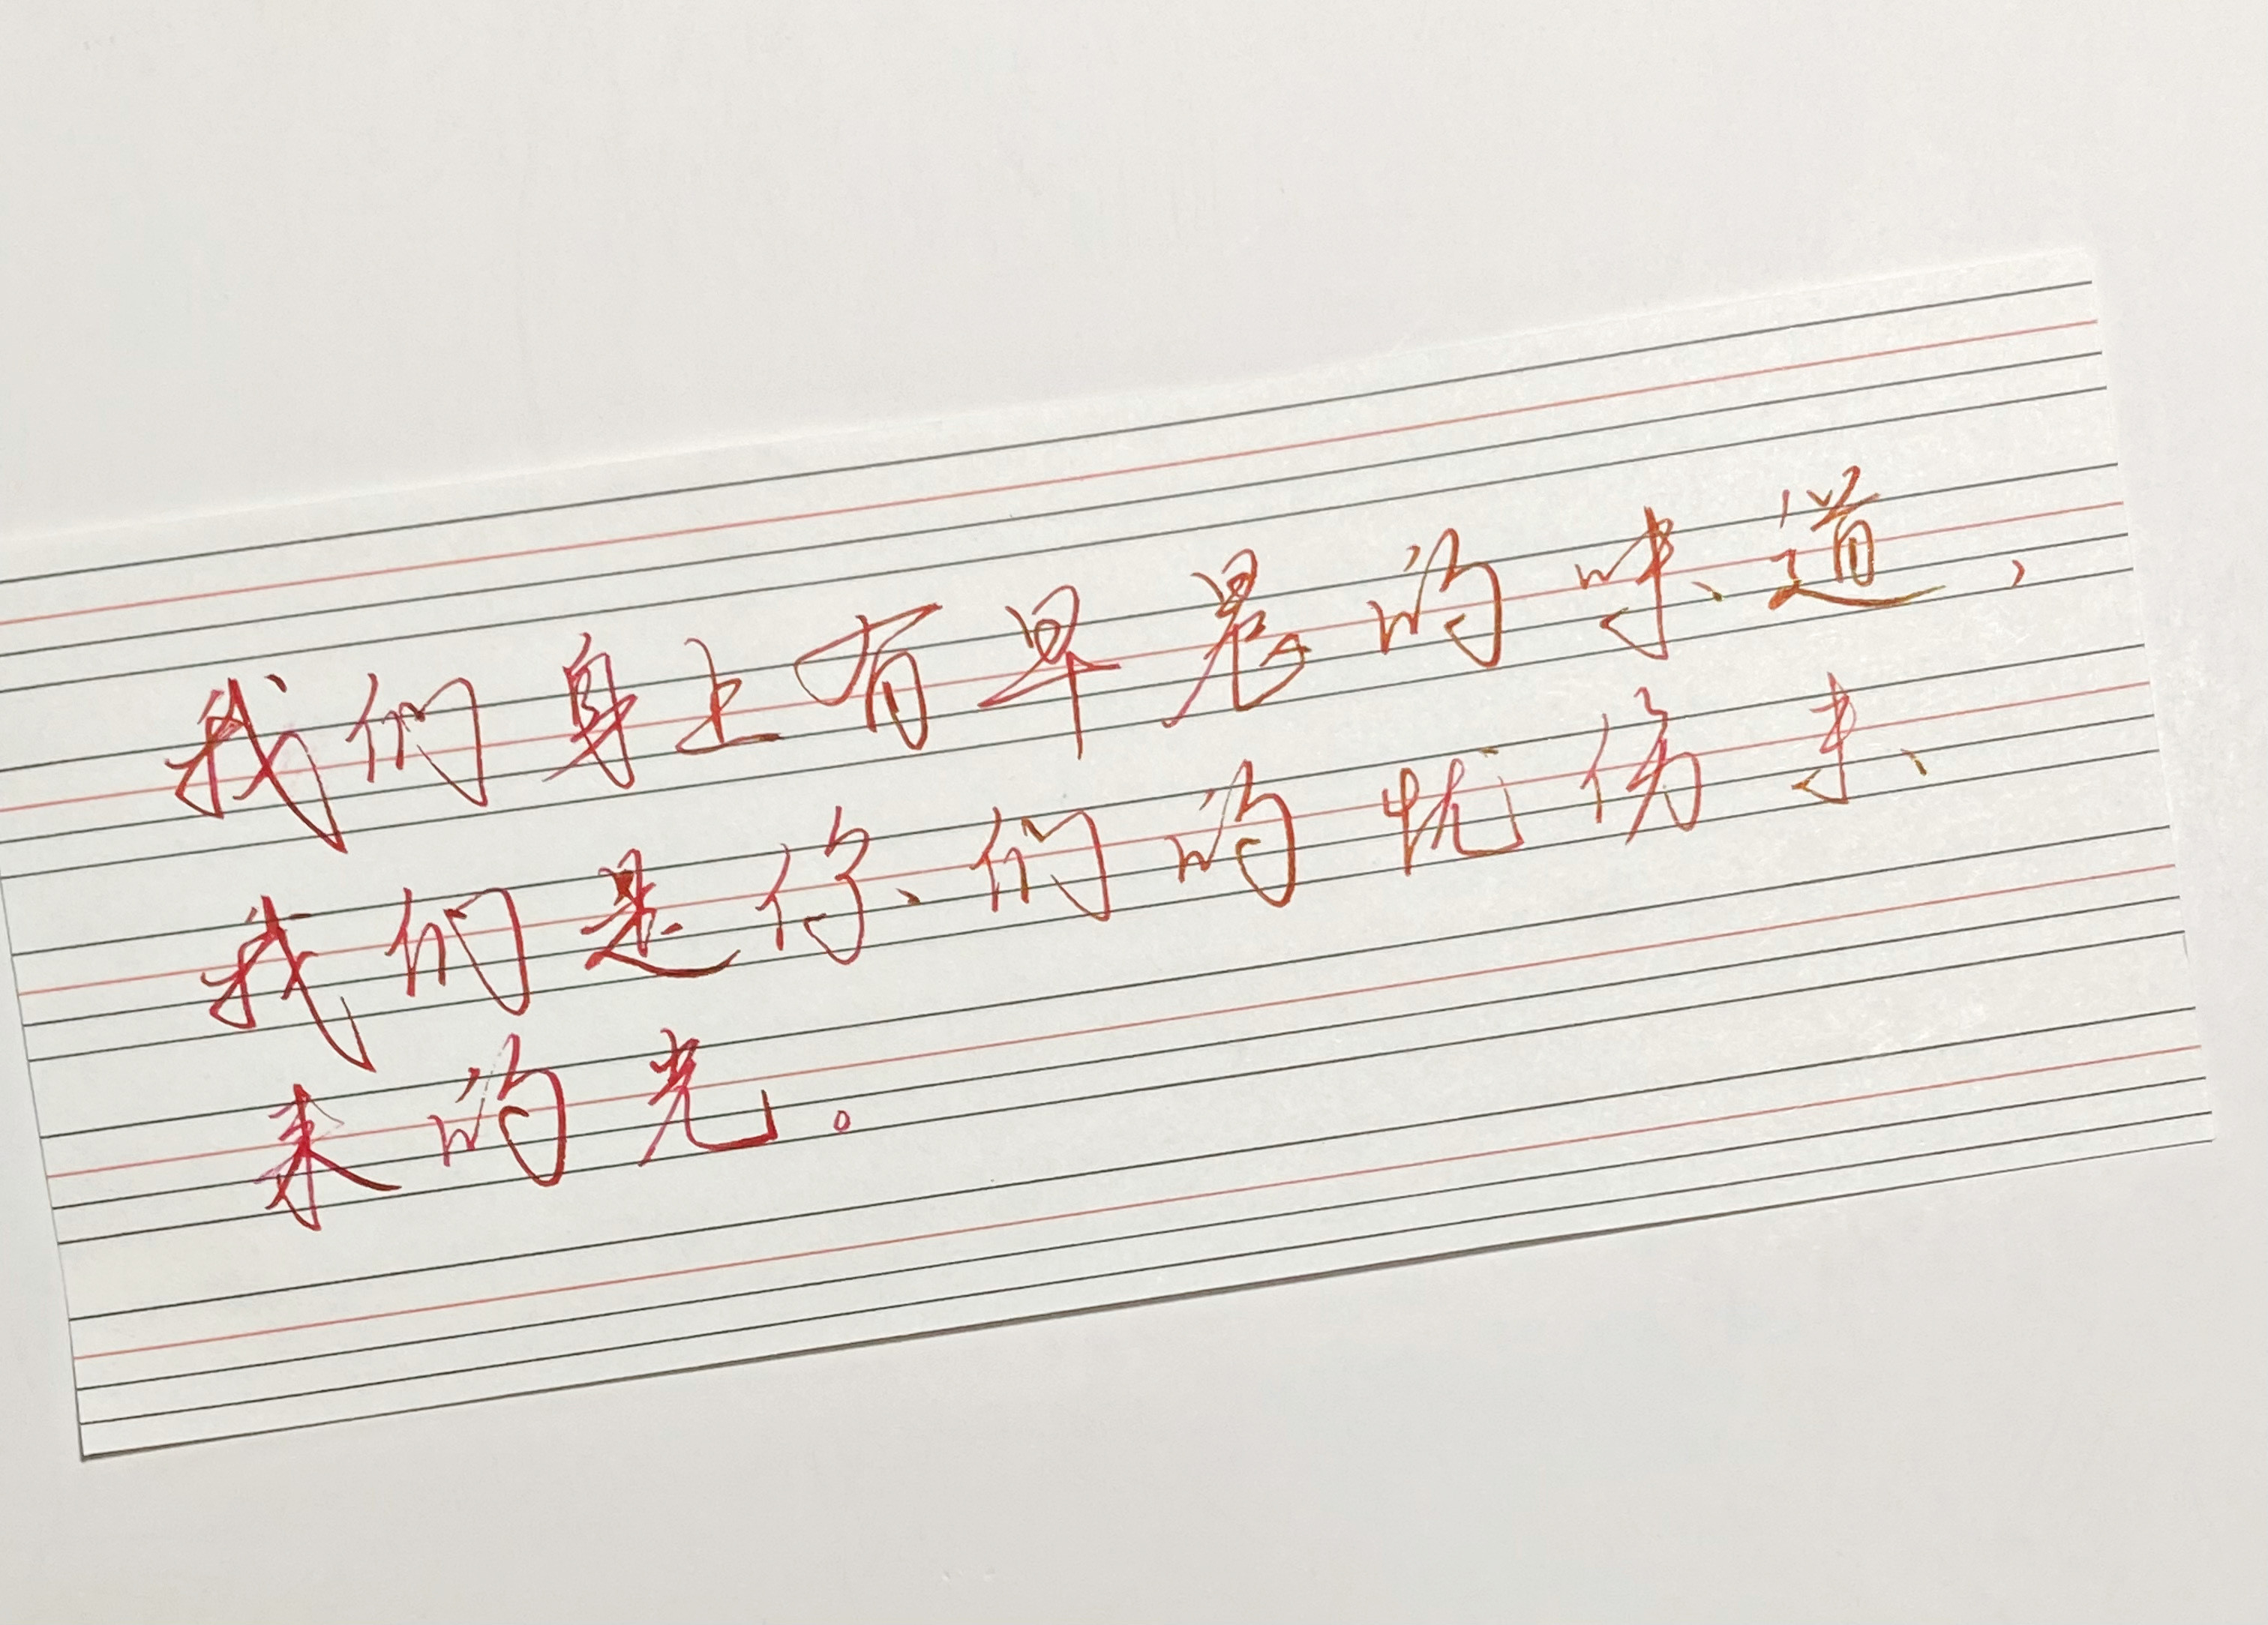 我们身上有早晨的味道，
我们是你们的忧伤未
来的光。